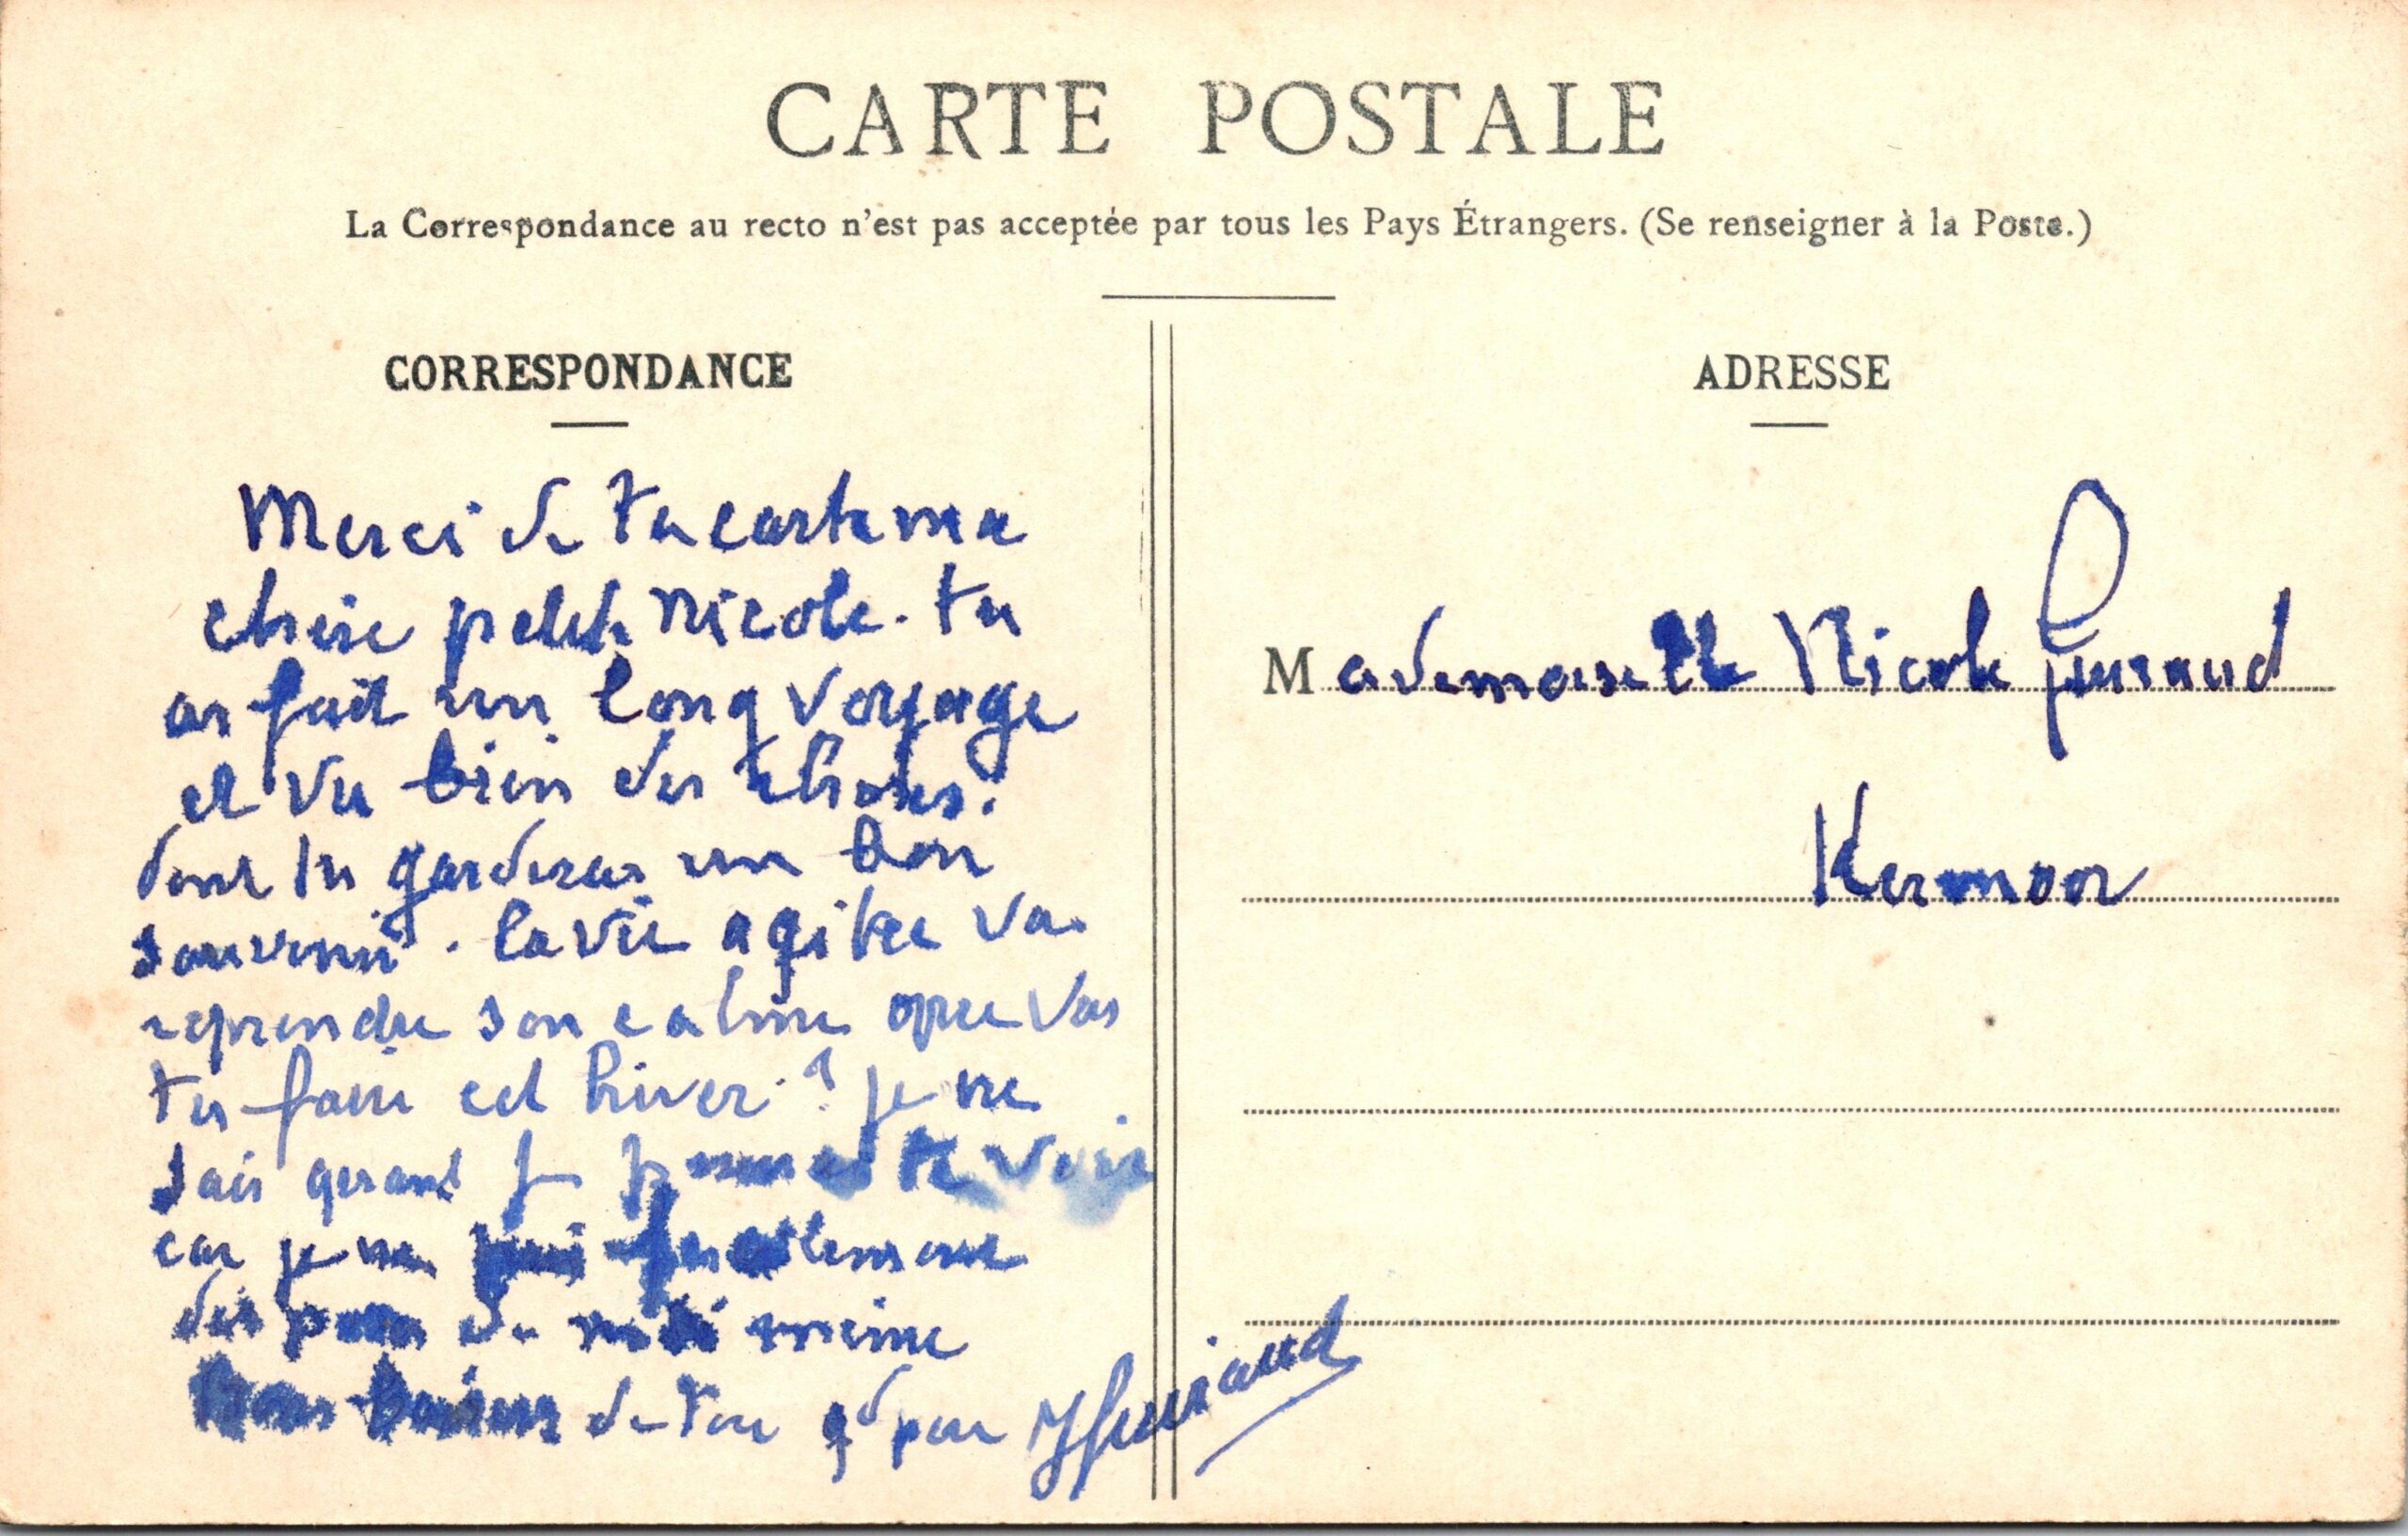 CARTE POSTALE
La Correspondance au recto n'est pas acceptée par tous les Pays Étrangers. (Se renseigner à la Poste.)
CORRESPONDANCE
ADRESSE
Merci de ta carte ma
chère petite Nicole. tu
as fait un long voyage
et vu bien des choses.
dont tu garderas un bon
souvenir. la vie agitée va
reprendre son calme que vas
tu faire cet hiver ? je ne
sais quand je te voir
car je ne
de même
Bons baisers de ton gd père
Mademoiselle Nicole
Kermoor